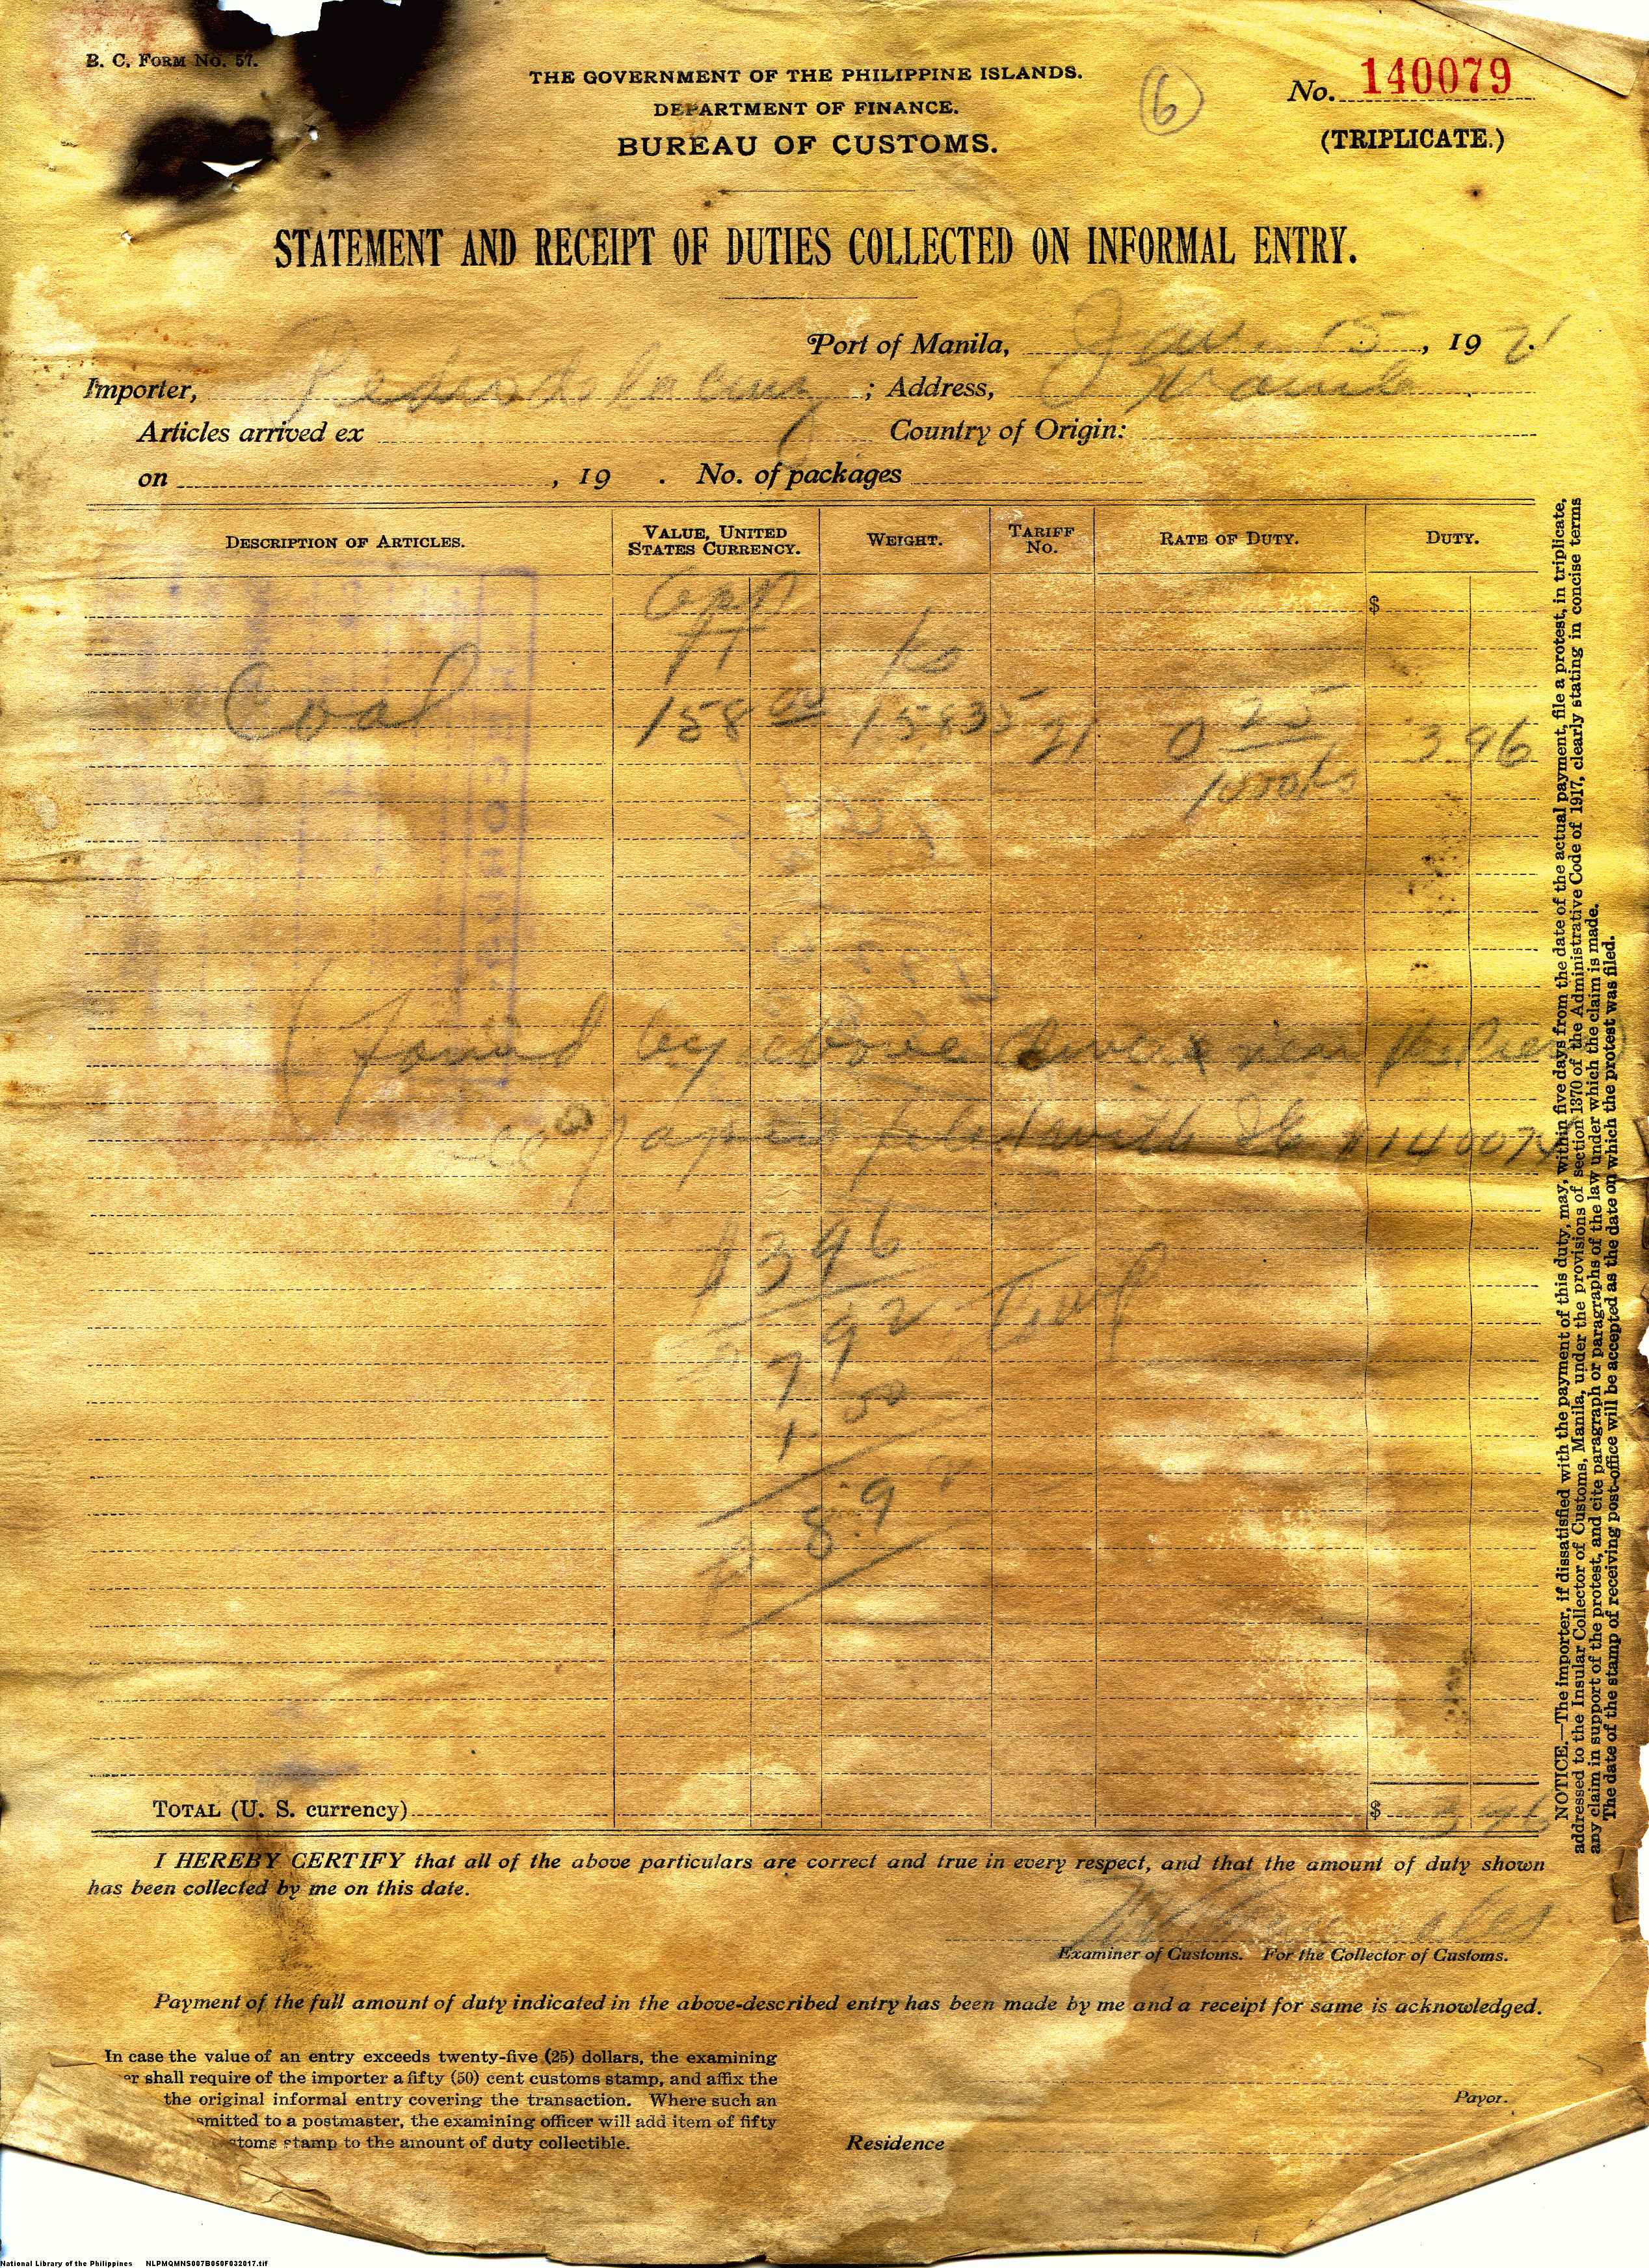 B. C. Form No. 57.
THE GOVERNMENT OF THE PHILIPPINE ISLANDS.
DEPARTMENT OF FINANCE.
BUREAU OF CUSTOMS.
6
No. 140079
(TRIPLICATE.)
STATEMENT AND RECEIPT OF DUTIES COLLECTED ON INFORMAL ENTRY.
Port of Manila, Jan. 15, 1921.
Importer, Pedro de la Cruz; Address, Manila
Articles arrived ex Country of Origin:
on , 19 . No. of packages
Description of Articles. Value, United States Currency. Weight. Tariff No. Rate of Duty. Duty.
App $
Ks
Coal 158 00 15,835 91 0 25 3 96
1000 ks
(found by above divers near
papers filed with 140078
$ 3 96
7 92
1 00
8.92
Total (U. S. currency) $ 3 96
I HEREBY CERTIFY that all of the above particulars are correct and true in every respect, and that the amount of duty shown
has been collected by me on this date.
Examiner of Customs. For the Collector of Customs.
Payment of the full amount of duty indicated in the above-described entry has been made by me and a receipt for same is acknowledged.
In case the value of an entry exceeds twenty-five (25) dollars, the examining
er shall require of the importer a fifty (50) cent customs stamp, and affix the
the original informal entry covering the transaction. Where such an
smitted to a postmaster, the examining officer will add item of fifty
stoms stamp to the amount of duty collectible.
Payor.
Residence
NOTICE.—The importer, if dissatisfied with the payment of this duty, may, within five days from the date of the actual payment, file a protest, in triplicate,
addressed to the Insular Collector of Customs, Manila, under the provisions of section 1370 of the Administrative Code of 1917, clearly stating in concise terms
any claim in support of the protest, and cite paragraph or paragraphs of the law under which the claim is made.
The date of the stamp of receiving post-office will be accepted as the date on which the protest was filed.
National Library of the Philippines NLPMQMNS007B050F032017.tif